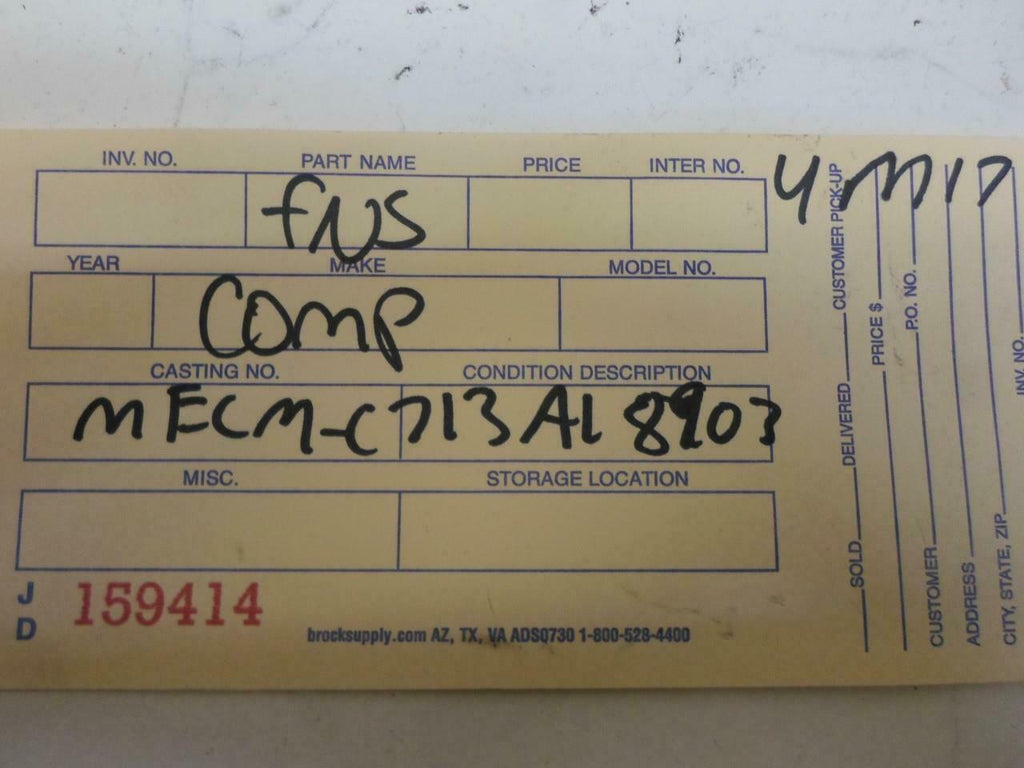 INV. NO. PART NAME PRICE INTER NO.
fNS
YEAR MAKE MODEL NO.
COMP
CASTING NO. CONDITION DESCRIPTION
MECM-C713AL 8903
MISC. STORAGE LOCATION
J D 159414
brocksupply.com AZ, TX, VA ADSQ730 1-800-528-4400
SOLD DELIVERED CUSTOMER PICK-UP
PRICE $
CUSTOMER P.O. NO.
ADDRESS
CITY, STATE, ZIP
INV. NO.